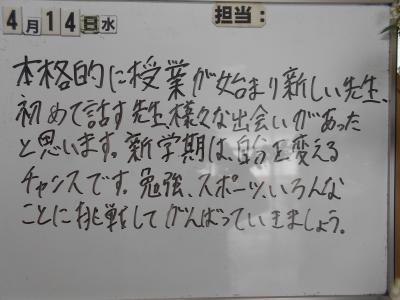 4月14日水 担当:
本格的に授業が始まり新しい先生、
初めて話す先生様々な出会いがあった
と思います。新学期は、自分を変える
チャンスです。勉強、スポーツ、いろんな
ことに挑戦してがんばっていきましょう。